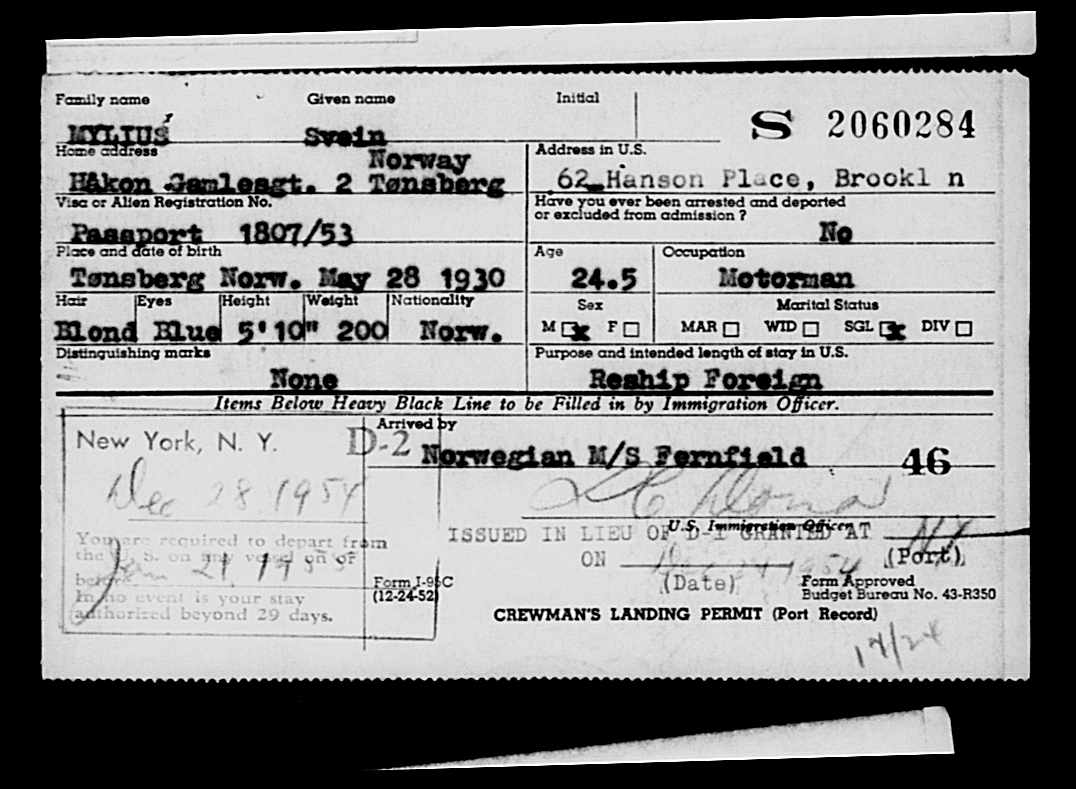 Family name Given name Initial
S 2060284
MYLIUS Svein
Home address Address in U.S.
Norway
Håkon Gamlesgt. 2 Tønsberg 62 Hanson Place, Brookl n
Visa or Alien Registration No. Have you ever been arrested and deported
or excluded from admission ?
Passport 1807/53 No
Place and date of birth Age Occupation
Tønsberg Norw. May 28 1930 24.5 Motorman
Hair Eyes Height Weight Nationality Sex Marital Status
Blond Blue 5'10" 200 Norw. M x F MAR WID SGL x DIV
Distinguishing marks Purpose and intended length of stay in U.S.
None Reship Foreign
Items Below Heavy Black Line to be Filled in by Immigration Officer.
Arrived by
New York, N. Y. D-2 Norwegian M/S Fernfield 46
Dec 28 1954
U.S. Immigration Officer
ISSUED IN LIEU OF D-1 GRANTED AT NY
You are required to depart from
the U. S. on any vessel on or
ON Dec 24 1954 (Port)
before Jan 21 1955
(Date)
Form I-95C Form Approved
(12-24-52) Budget Bureau No. 43-R350
In no event is your stay
authorized beyond 29 days.
CREWMAN'S LANDING PERMIT (Port Record)